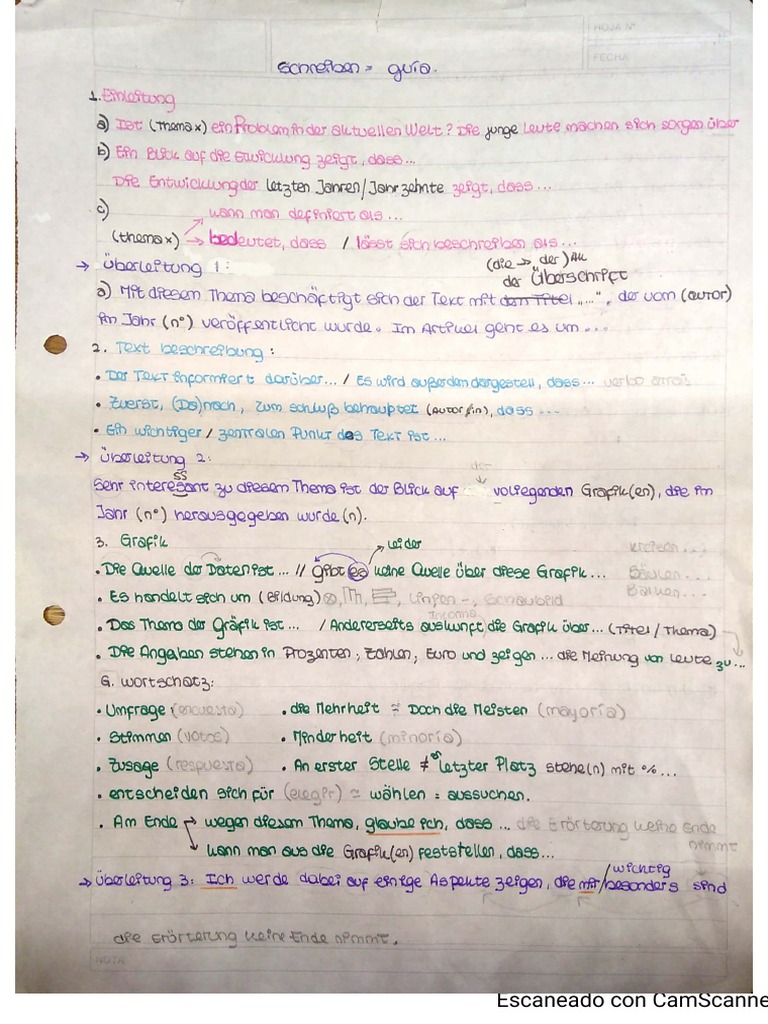 HOJA N°
FECHA
Schreiben = guía.
1. Einleitung
a) Ist (thema x) ein Problem in der aktuellen Welt? Die junge Leute machen sich sorgen über
b) Ein Blick auf die Ewicklung zeigt, dass...
Die Entwicklung der letzten Jahren/Jahrzehnte zeigt, dass...
c)
kann man definiert als...
(thema x) → bedeutet, dass / lässt sich beschreiben als...
→ Überleitung 1:
(die → der) Akk
der Überschrift
a) Mit diesem Thema beschäftigt sich der Text mit dem Titel "...", der vom (autor)
im Jahr (n°) veröffentlicht wurde. Im Artikel geht es um...
2. Text beschreibung:
• Der Text informiert darüber... / Es wird außerdem dargestell, dass... verbo atrás
• Zuerst, (Da)nach, zum schluß behauptet (Autor/in), dass...
• Ein wichtiger / zentralen Punkt des Text ist...
→ Überleitung 2:
ss
Sehr interesant zu diesem Thema ist der Blick auf vorliegenden Grafik(en), die im
Jahr (n°) herausgegeben wurde(n).
3. Grafik
leider
Kreisen...
• Die Quelle der Daten ist... // gibt es keine Quelle über diese Grafik...
Säulen...
• Es handelt sich um (Bildung) , Linien -, Schaubild
Balken...
• Das Thema der Gräfik ist... / Andererseits auskunft die Grafik über... (Titel / Thema)
• Die Angaben stehen in Prozenten, Zahlen, Euro und zeigen... die Meinung von Leute zu...
G. wortschatz:
• Umfrage (encuesta) • die Mehrheit ≈ Doch die Meisten (mayoría)
• Stimmen (votos) • Minderheit (minoría)
• Zusage (respuesta) • An erster Stelle ≠ letzter Platz stehe(n) mit %...
• entscheiden sich für (elegir) ≈ wählen = aussuchen.
• Am Ende → wegen diesem Thema, glaube ich, dass... die Erörterung keine Ende
nimmt
kann man aus die Grafik(en) feststellen, dass...
/wichtig
→ Überleitung 3: Ich werde dabei auf einige Aspekte zeigen, die mir/besonders sind
die Erörterung keine Ende nimmt.
NOTA
Escaneado con CamScanne